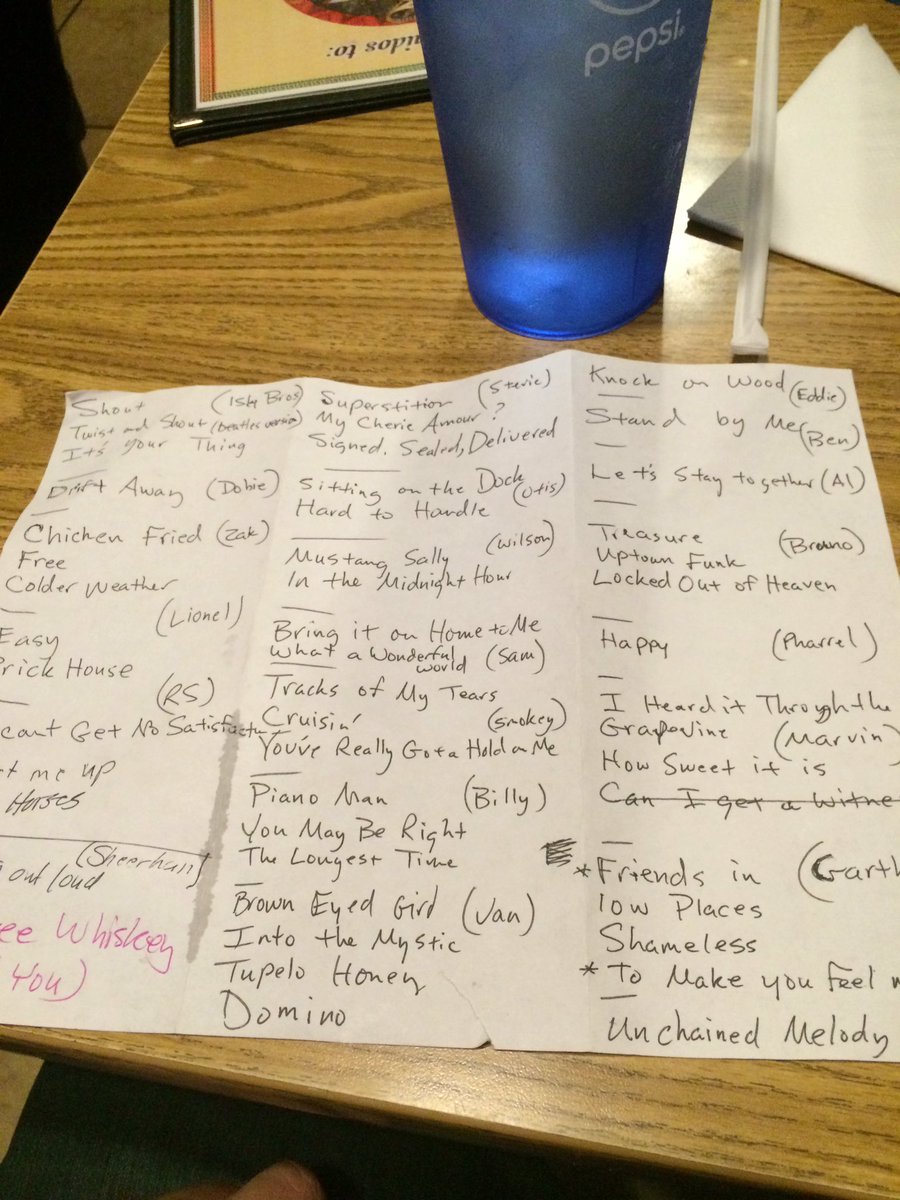 uidos to:
pepsi
Shout (Isly Bros)
Twist and Shout (Beatles version)
It's Your Thing
Drift Away (Dobie)
Chichen Fried (Zak)
Free
Colder Weather
(Lionel)
Easy
rick House
(RS)
cant Get No Satisfact
t me up
Horses
(Sheerhan)
out loud
ee Whiskey
You)
Superstition (Stevie)
My Cherie Amour ?
Signed, Sealed, Delivered
Sitting on the Dock (Otis)
Hard to Handle
Mustang Sally (Wilson)
In the Midnight Hour
Bring it on Home to Me
What a Wonderful world (Sam)
Tracks of My Tears
Cruisin' (Smokey)
You've Really Got a Hold on Me
Piano Man (Billy)
You May Be Right
The Longest Time
Brown Eyed Girl (Van)
Into the Mystic
Tupelo Honey
Domino
Knock on Wood (Eddie)
Stand by Me (Ben)
Let's Stay together (Al)
Treasure (Bruno)
Uptown Funk
Locked Out of Heaven
Happy (Pharrel)
I Heard it Through the
Grapevine (Marvin)
How Sweet it is
Can I get a Witne
*Friends in (Garth
low Places
Shameless
* To Make you Feel m
Unchained Melody